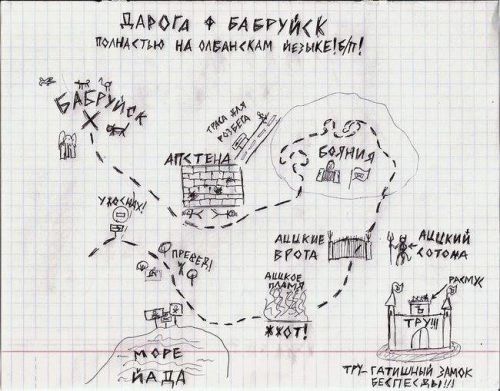 ДАРОГА Ф БАБРУЙСК
ПОЛНАСТЬЮ НА ОЛБАНСКАМ ЙЕЗЫКЕ!Б/П!
БАБРУЙСК
ТРАСА ДЛЯ
РОЗБЕГА
АПСТЕНА
БОЯНИЯ
УЖОСНАХ!
ПРЕВЕД!
АЦЦКИЕ
ВРОТА
АЦЦКИЙ
СОТОМА
АЦЦКОЕ
ПЛАМЯ
ЖЖОТ!
РАСМУС
ТРУ!!!
МОРЕ
ЙАДА
ТРУ-ГАТИШНЫЙ ЗАМОК
БЕСПЕСДЫ!!!